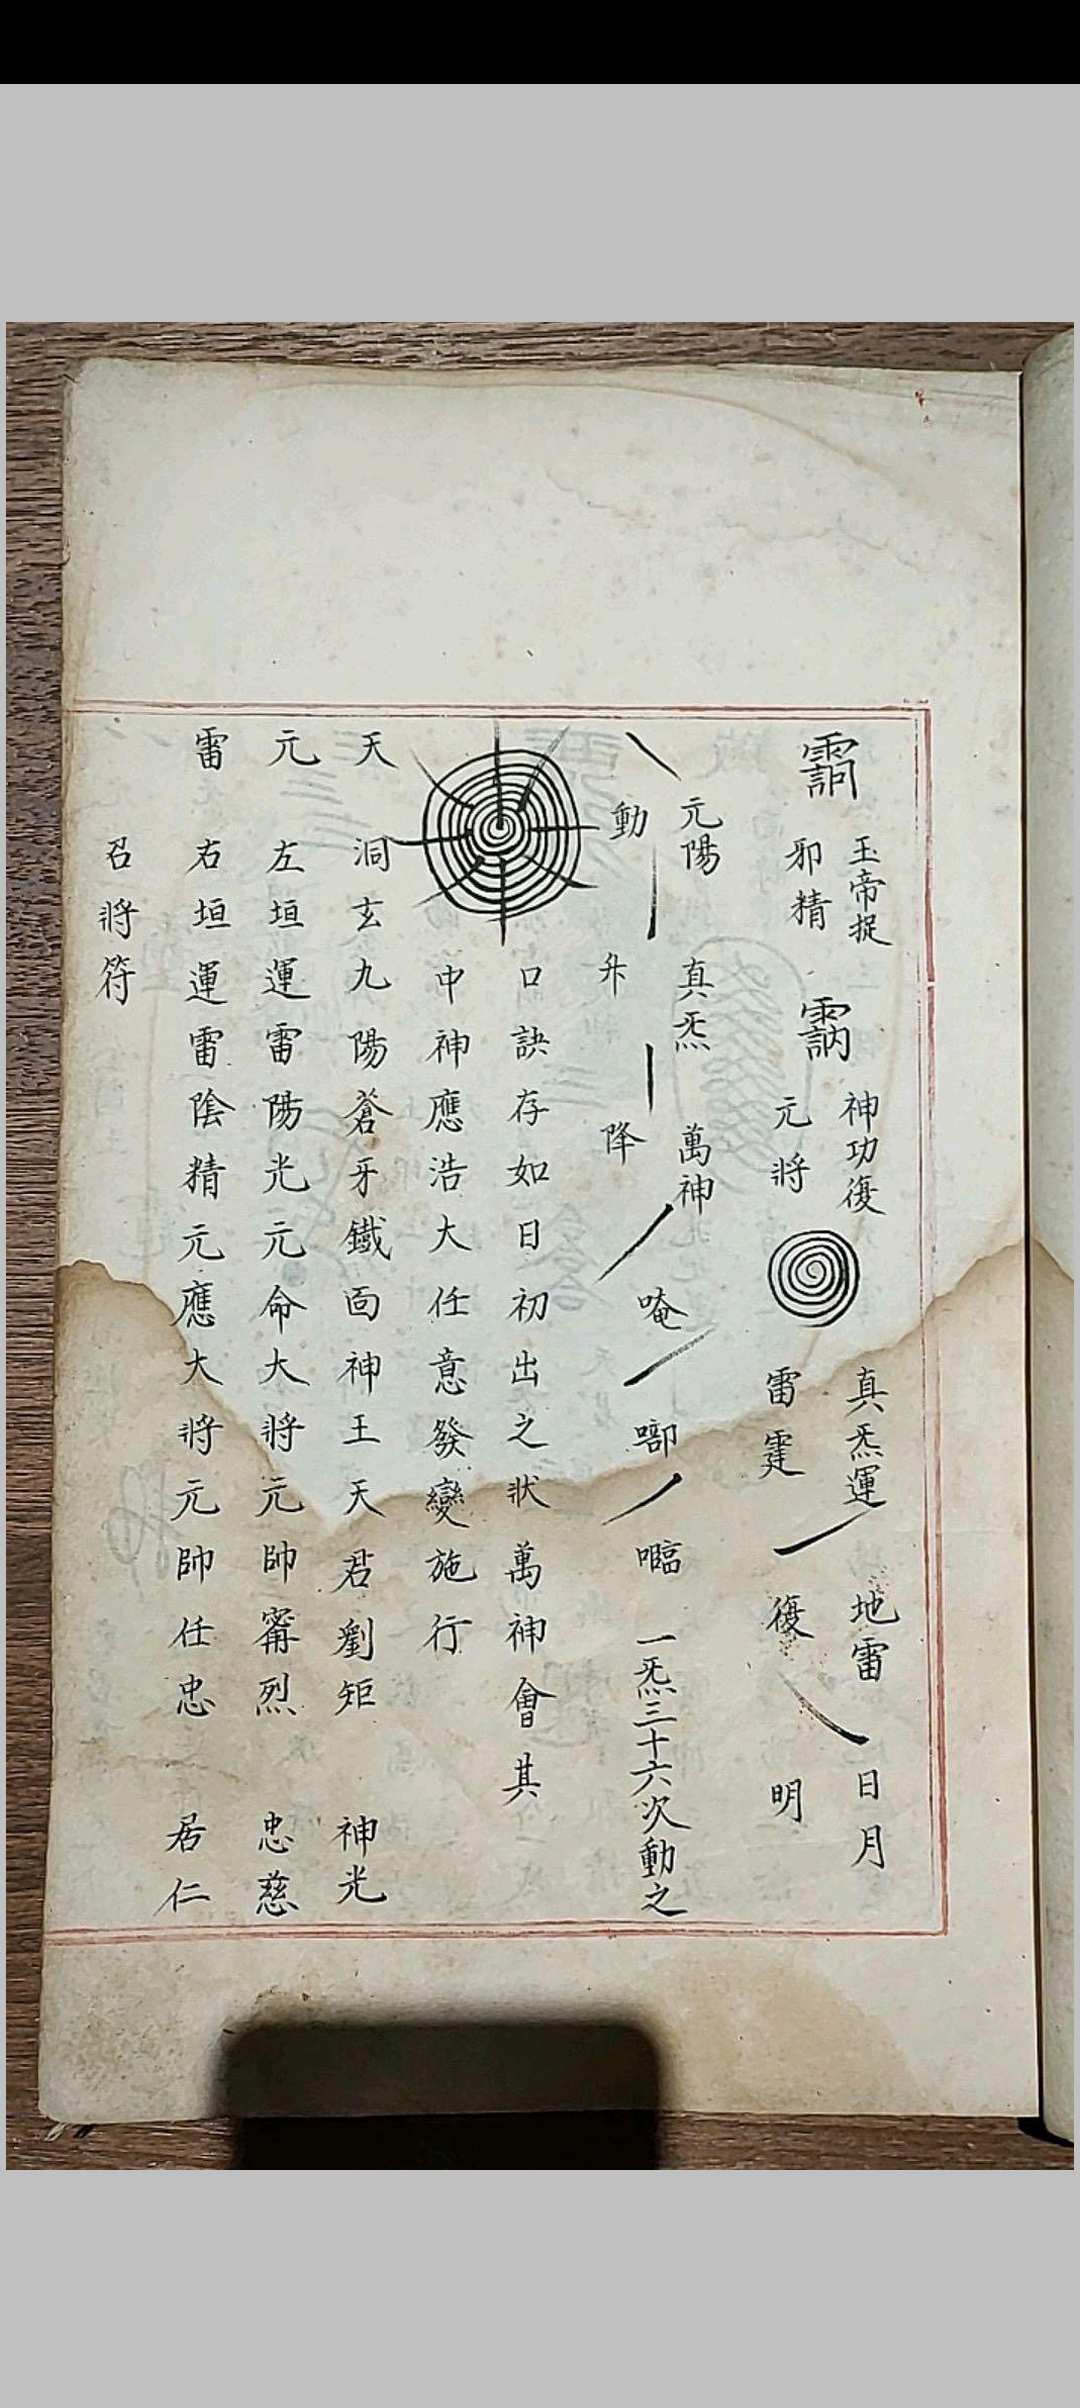 玉帝捉邪精
神功復元將
真炁運雷霆
地雷復
日月明
元陽動
真炁升
萬神降
唵
啣
㘕
一炁三十六次動之
口訣存如日初出之狀萬神會其
中神應浩大任意發變施行
天洞玄九陽蒼牙鐵面神王天君劉矩 神光
元左垣運雷陽光元命大將元帥甯烈 忠慈
雷右垣運雷陰精元應大將元帥任忠 居仁
召將符